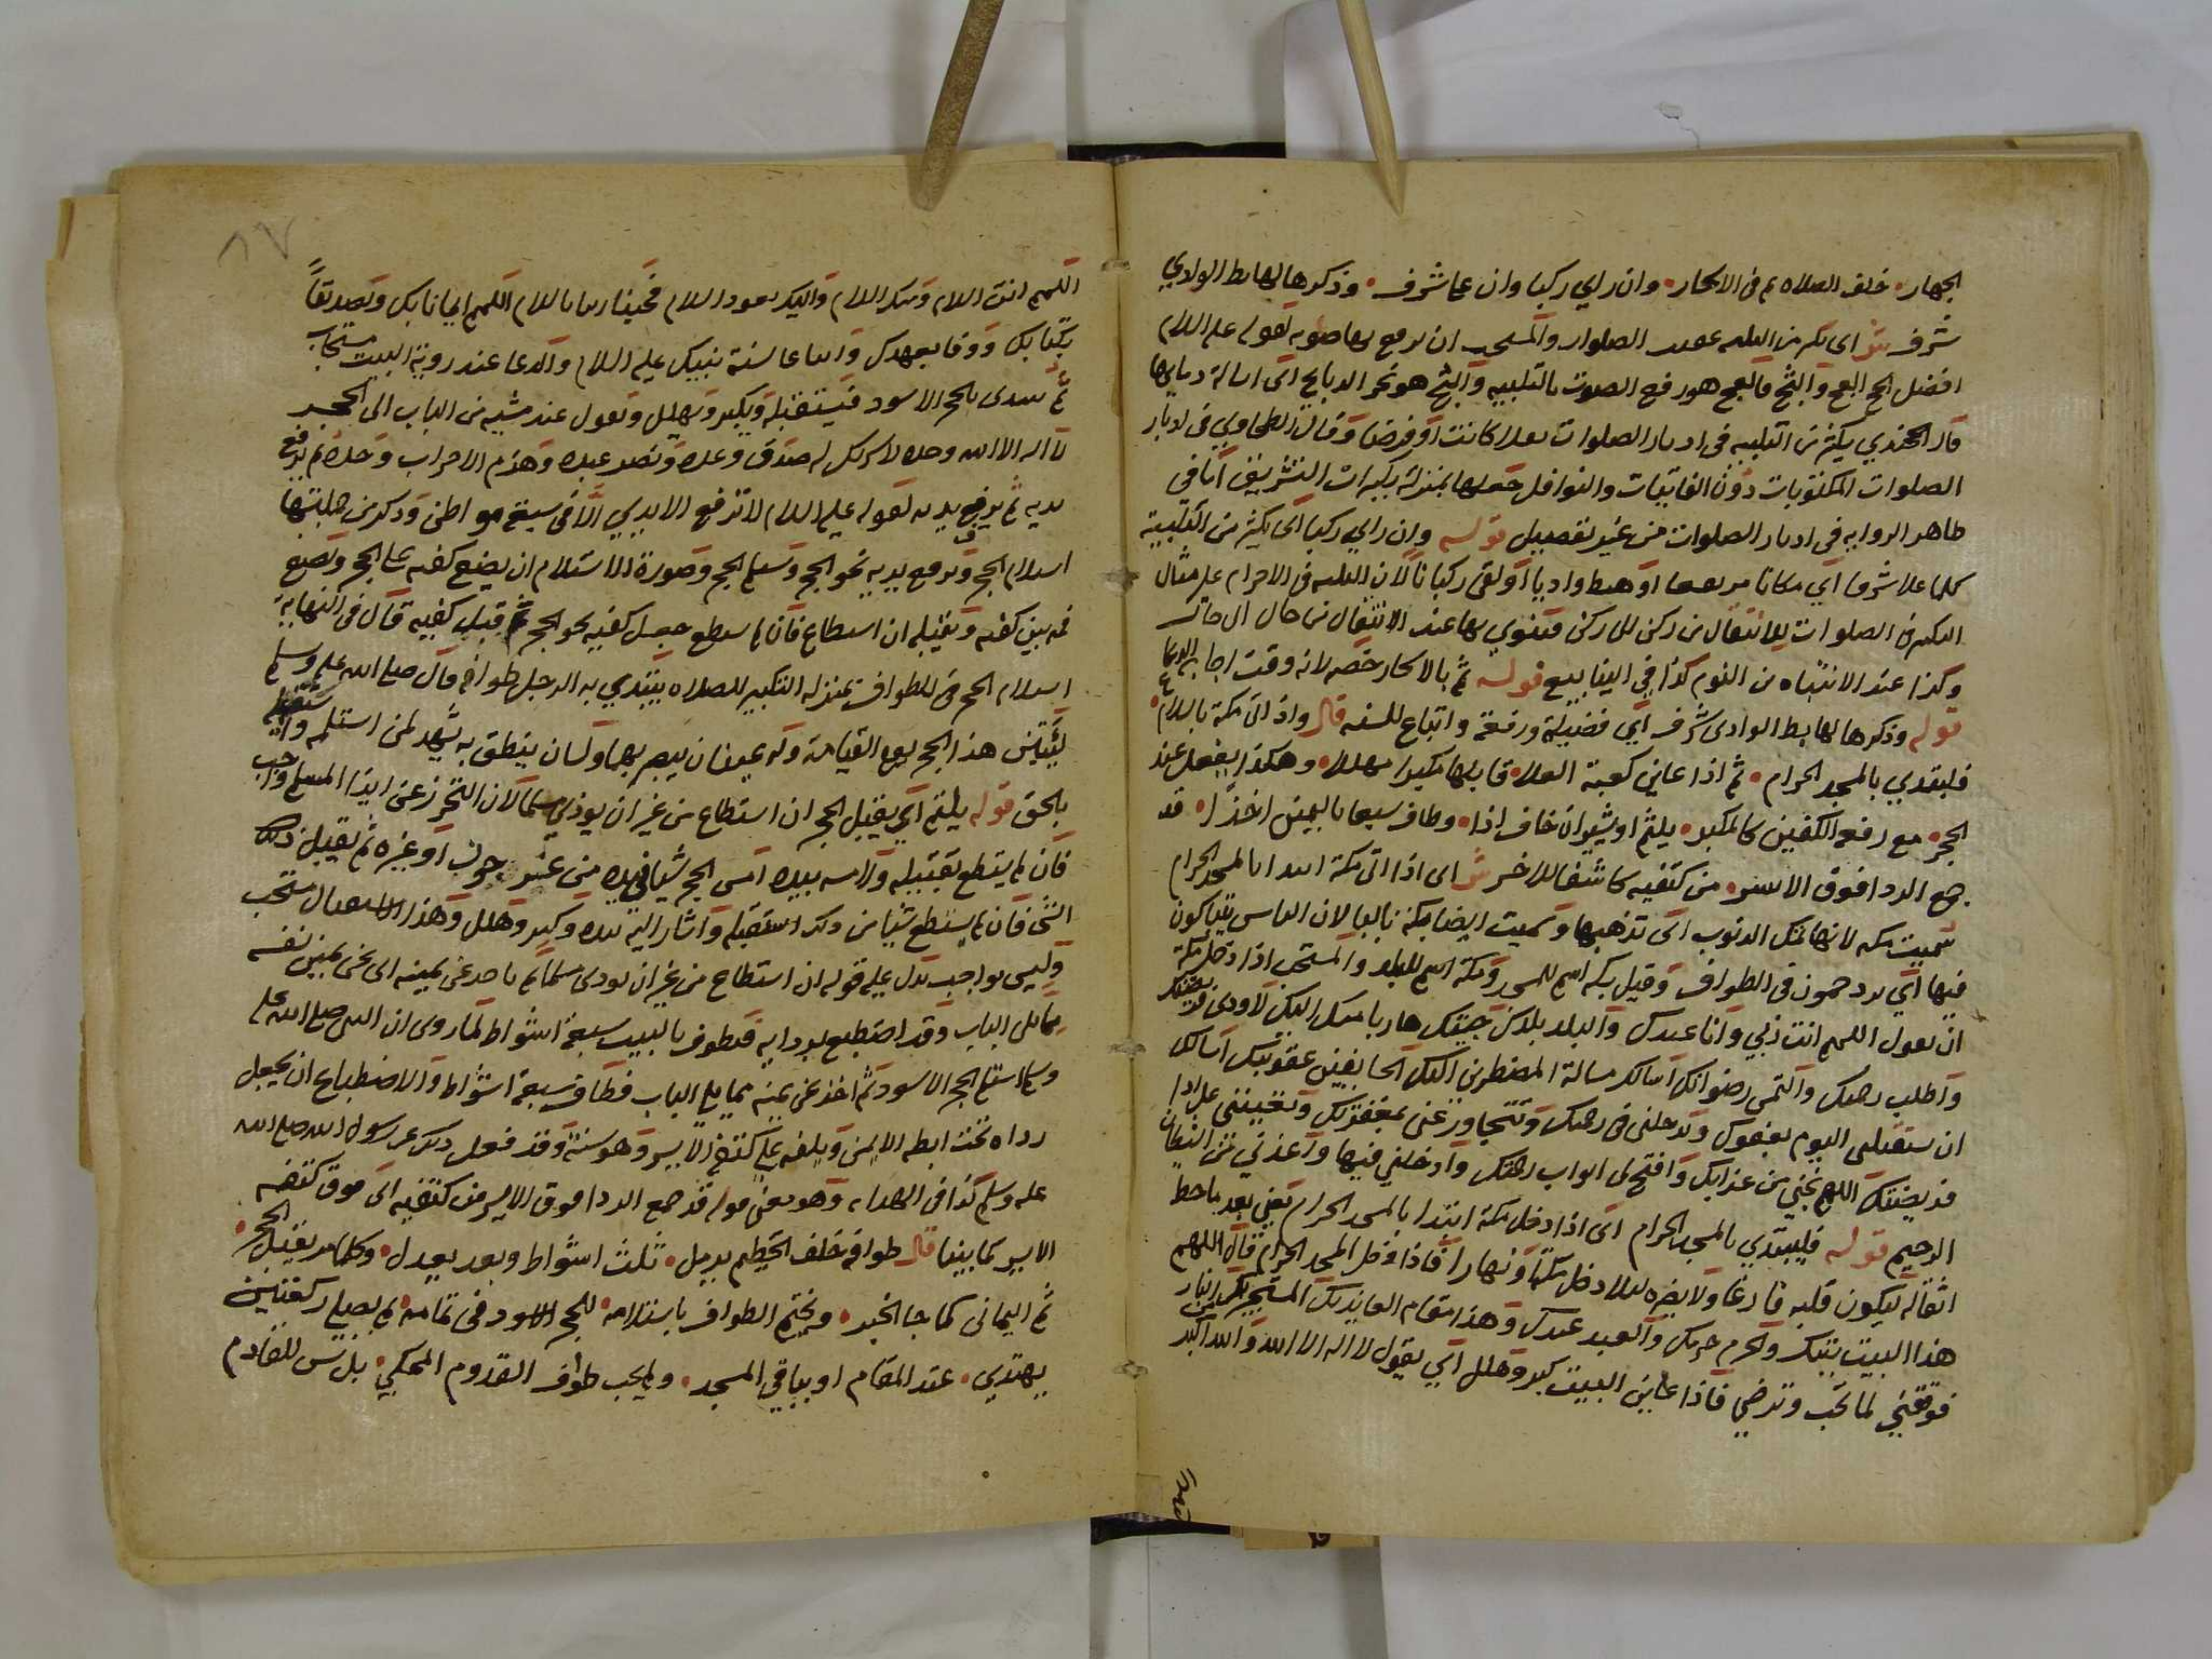 الجهار خلف الصلاه ثم فى الاسحار وان راي ركبا وان علا شرف وذكرها لهابط الوادي
شرف ش اى يكثر من التلبيه عقيب الصلوات والمستحب ان يرفع بها صوته لقوله عليه السلام
افضل الحج العج والثج فالعج هو رفع الصوت بالتلبيه والثج هو نحر الدبايح اى اسالة دمايها
قال الخجندي يكثر من التلبيه فى ادبار الصلوات نفلا كانت او فرضا وقال الطحاوي فى ادبار
الصلوات المكتوبات دون الفائتات والنوافل جعلها بمنزلة تكبيرات التشريق اما فى
ظاهر الروايه فى ادبار الصلوات من غير تفصيل قوله وان راي ركبا اى يكثر من التلبيه
كلما علا شرفا اي مكانا مرتفعا او هبط واديا او لقى ركبانا لان التلبيه فى الاحرام على مثال
التكبير فى الصلوات للانتقال من ركن الى ركن فتنوي بها عند الانتقال من حال الى حال
وكذا عند الانتباه من النوم كذا في الينابيع قوله ثم بالاسحار خصه لانه وقت اجابه الدعا
قوله وذكرها لهابط الوادى شرف اي فضيلة ورفعة واتباع للسنه قال واذ اتى مكة بالسلام
فليبتدي بالمسجد الحرام ثم اذا عاين كعبة العلا قابلها مكبرا مهللا وهكذا يفعل عند
الحجر مع رفعه الكفين كالمكبر يلثم او يشير ان خاف اذا وطاف سبعا باليمين اخذا قد
جمع الردا فوق الايسر من كتفيه كاشفا للاخر ش اى اذا اتى مكة ابتدا بالمسجد الحرام
سميت مكه لانها تمك الدنوب اى تذهبها وسميت ايضا بكة بالبا لان الناس يتباكون
فيها اي يزدحمون فى الطواف وقيل بكه اسم للمسجد ومكة اسم للبلد والمستحب اذا دخل مكة
ان يقول اللهم انت ربي وانا عبدك والبلد بلدك جيتك هاربا منك اليك لاودى فريضتك
واطلب رحمتك والتمس رضوانك اسالك مسالة المضطرين اليك الخايفين عقوبتك اسالك
ان تستقبلنى اليوم بعفوك وتدخلنى فى رحمتك وتتجاوز عنى بمغفرتك وتعينني على ادا
فريضتك اللهم نجني من عذابك وافتح لى ابواب رحمتك وادخلني فيها واعذني من الشيطان
الرجيم قوله فليبتدي بالمسجد الحرام اى اذا دخل مكة ابتدا بالمسجد الحرام يعني بعد ما حط
اثقاله ليكون قلبه فارغا ولا يضره ليلا دخل مكة او نهارا فاذا دخل المسجد الحرام قال اللهم
هذا البيت بيتك والحرم حرمك والعبد عبدك وهذا مقام العايذ بك المستجير بك من النار
فوفقني لما تحب وترضي فاذا عاين البيت كبر وهلل اي يقول لا اله الا الله والله اكبر
اللهم
٨٧
اللهم انت السلام ومنك السلام واليك يعود السلام فحينا ربنا بالسلام اللهم ايمانا بك وتصديقا
بكتابك ووفا بعهدك واتباعا لسنة نبيك عليه السلام والدعا عند روية البيت مستجاب
ثم يبتدى بالحجر الاسود فيستقبله ويكبر ويهلل ويقول عند مشيه من الباب الى الحجر
لا اله الا الله وحده لا شريك له صدق وعده ونصر عبده وهزم الاحزاب وحده ثم يرفع
يديه ثم يرفع يديه لقوله عليه السلام لا ترفع الايدي الا فى سبعة مواطن وذكر من جملتها
استلام الحجر ويرفع يديه نحو الحجر ويستلم الحجر وصورة الاستلام ان يضع كفيه على الحجر ويضع
فمه بين كفيه ويقبله ان استطاع فان لم يستطع جعل كفيه نحو الحجر ثم قبل كفيه قال فى النهايه
استلام الحجر فى الطواف بمنزله التكبير للصلاه يبتدي به الرجل طوافه قال صلى الله عليه وسلم
ليبعثن هذا الحجر يوم القيامة وله عينان يبصر بهما ولسان ينطق به يشهد لمن استلمه واستقبله
بالحق قوله يلثم اي يقبل الحجر ان استطاع من غير ان يوذي مسلما لان التحرز عن ايذا المسلم واجب
فان لم يستطع تقبيله ولامسه بيده امس الحجر شيا فى يده من عرجون او غيره ثم تقبيل ذلك
الشى فان لم يستطع شيا من ذلك استقبله واشار اليه بيده وكبر وهلل وهذا الاستقبال مستحب
وليس بواجب يدل عليه قوله ان استطاع من غير ان يودى مسلما ثم ياخذ عن يمينه اى عن يمين نفسه
مما يلى الباب وقد اضطبع بردايه فيطوف بالبيت سبعة اشواط لما روى ان النبى صلى الله عليه
وسلم استلم الحجر الاسود ثم اخذ عن يمينه مما يلى الباب فطاف سبعة اشواط والاضطباع ان يجعل
رداه تحت ابطه الايمن ويلقيه على كتفه الايسر وهو سنة وقد فعل ذلك رسول الله صلى الله
عليه وسلم كذا فى الهدايه وهو معنى قوله قد جمع الردا فوق الايسر من كتفيه اى فوق كتفه
الايسر كما بينا قال طوافه خلف الحطيم يرمل ثلث اشواط وبعد يعدل وكلما مر يقبل الحجر
ثم اليمانى كما جا الخبر ويختم الطواف باستلامه للحجر الاسود فى تمامه ثم يصلى ركعتين
يهتدي عند المقام او بباقي المسجد ولم يجب طواف القدوم المحكي بل سن للقادم